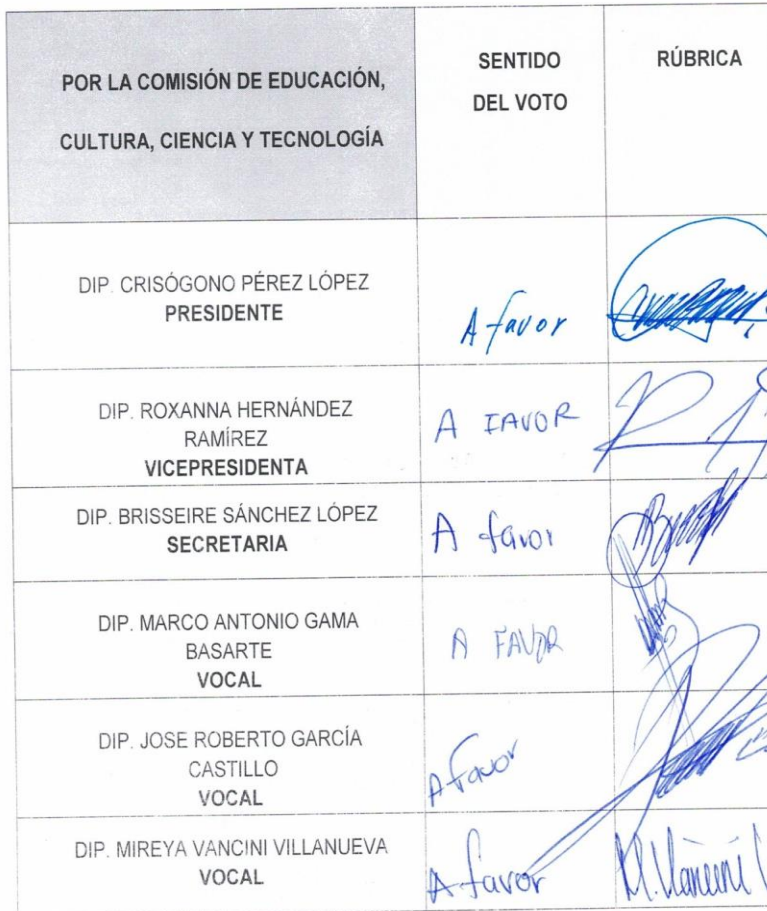 POR LA COMISIÓN DE EDUCACIÓN,
CULTURA, CIENCIA Y TECNOLOGÍA
SENTIDO
DEL VOTO
RÚBRICA
DIP. CRISÓGONO PÉREZ LÓPEZ
PRESIDENTE
A favor
DIP. ROXANNA HERNÁNDEZ
RAMÍREZ
VICEPRESIDENTA
A FAVOR
DIP. BRISSEIRE SÁNCHEZ LÓPEZ
SECRETARIA
A favor
DIP. MARCO ANTONIO GAMA
BASARTE
VOCAL
A FAVOR
DIP. JOSE ROBERTO GARCÍA
CASTILLO
VOCAL
A favor
DIP. MIREYA VANCINI VILLANUEVA
VOCAL
A favor